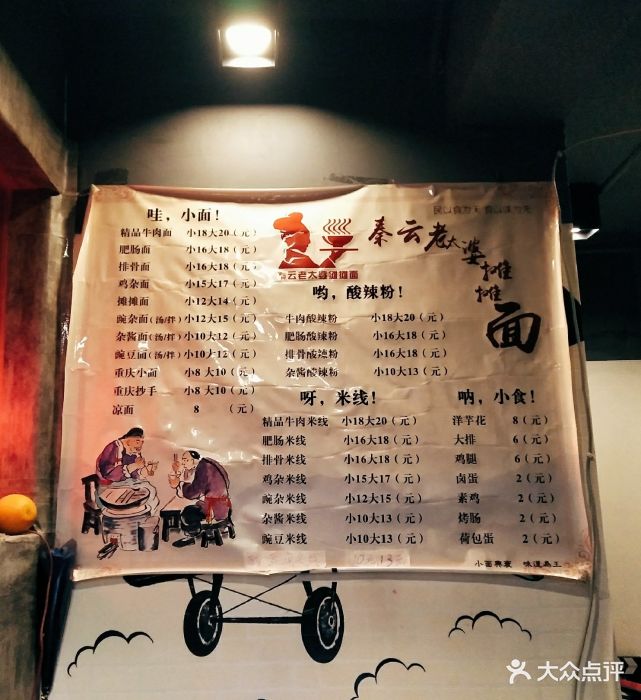 哇，小面！
精品牛肉面 小18大20（元）
肥肠面 小16大18（元）
排骨面 小16大18（元）
鸡杂面 小15大17（元）
摊摊面 小12大14（元）
豌杂面（汤/拌） 小12大15（元）
杂酱面（汤/拌） 小10大12（元）
豌豆面（汤/拌） 小10大12（元）
重庆小面 小8 大10（元）
重庆抄手 小8 大10（元）
凉面 8 （元）
民以食为天 食以味为先
秦云老太婆摊摊面
秦云老太婆摊摊面
哟，酸辣粉！
牛肉酸辣粉 小18大20（元）
肥肠酸辣粉 小16大18（元）
排骨酸辣粉 小16大18（元）
杂酱酸辣粉 小10大13（元）
呀，米线！
精品牛肉米线 小18大20（元）
肥肠米线 小16大18（元）
排骨米线 小16大18（元）
鸡杂米线 小15大17（元）
豌杂米线 小12大15（元）
杂酱米线 小10大13（元）
豌豆米线 小10大13（元）
呐，小食！
洋芋花 8（元）
大排 6（元）
鸡腿 6（元）
卤蛋 2（元）
素鸡 2（元）
烤肠 2（元）
荷包蛋 2（元）
小面兴衰 味道为王
大众点评